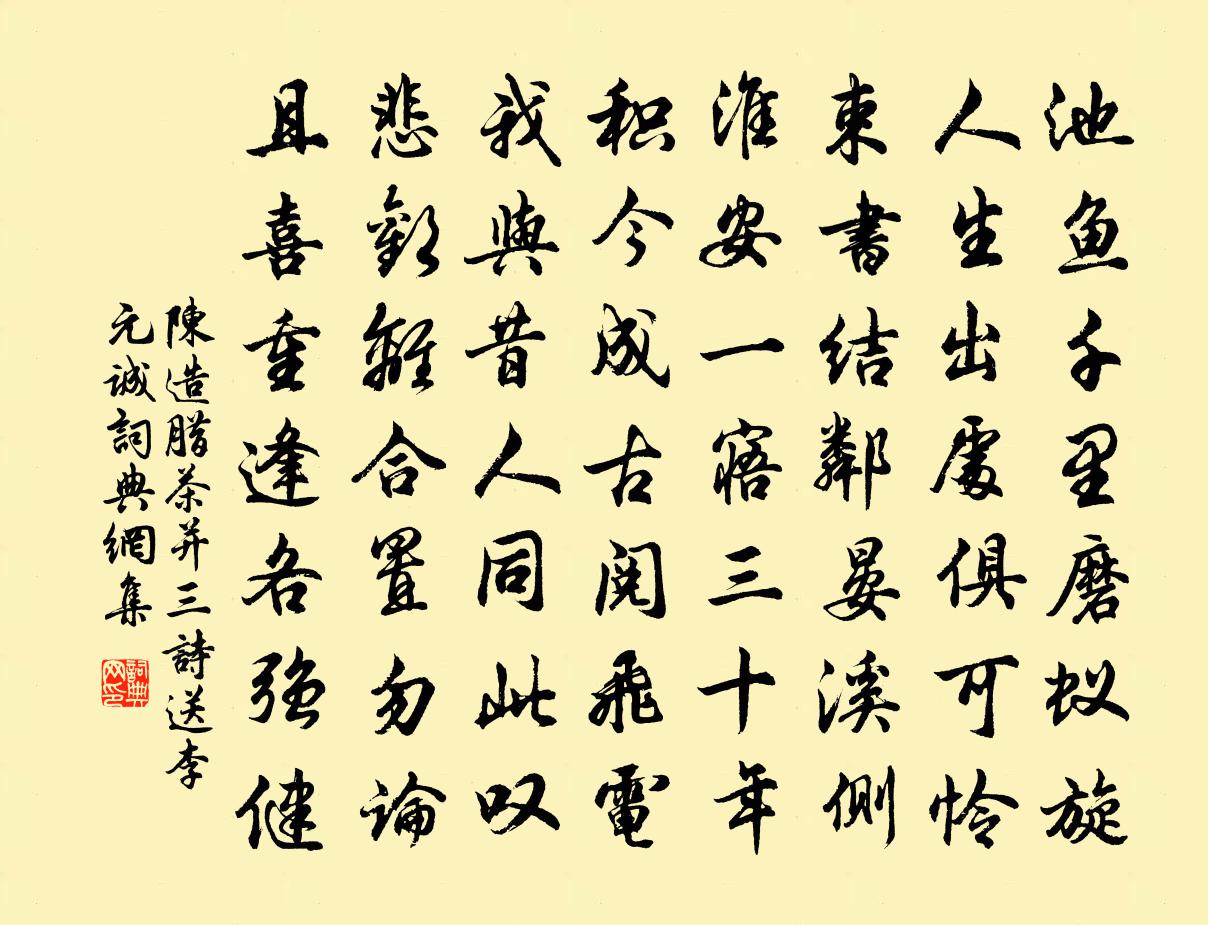 池鱼千里磨蚁旋
人生出處俱可怜
束書结鄰晏溪側
淮安一寤三十年
积今成古閲飛電
我與昔人同此叹
悲歡離合置勿論
且喜重逢各强健
陳造腊茶并三詩送李
元诚詞典網集
詞典网印